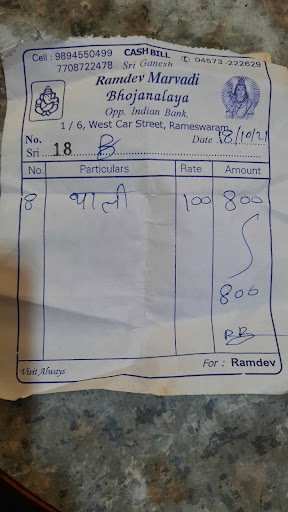 Cell : 9894550499 CASH BILL ✆ 04573-222629
7708722478 Sri Ganesh
Ramdev Marvadi
Bhojanalaya
Opp. Indian Bank,
1 / 6, West Car Street, Rameswaram
No. 18 Date 8/10/21
Sri
No. Particulars Rate Amount
8 थाली 100 800
800
Visit Always For : Ramdev